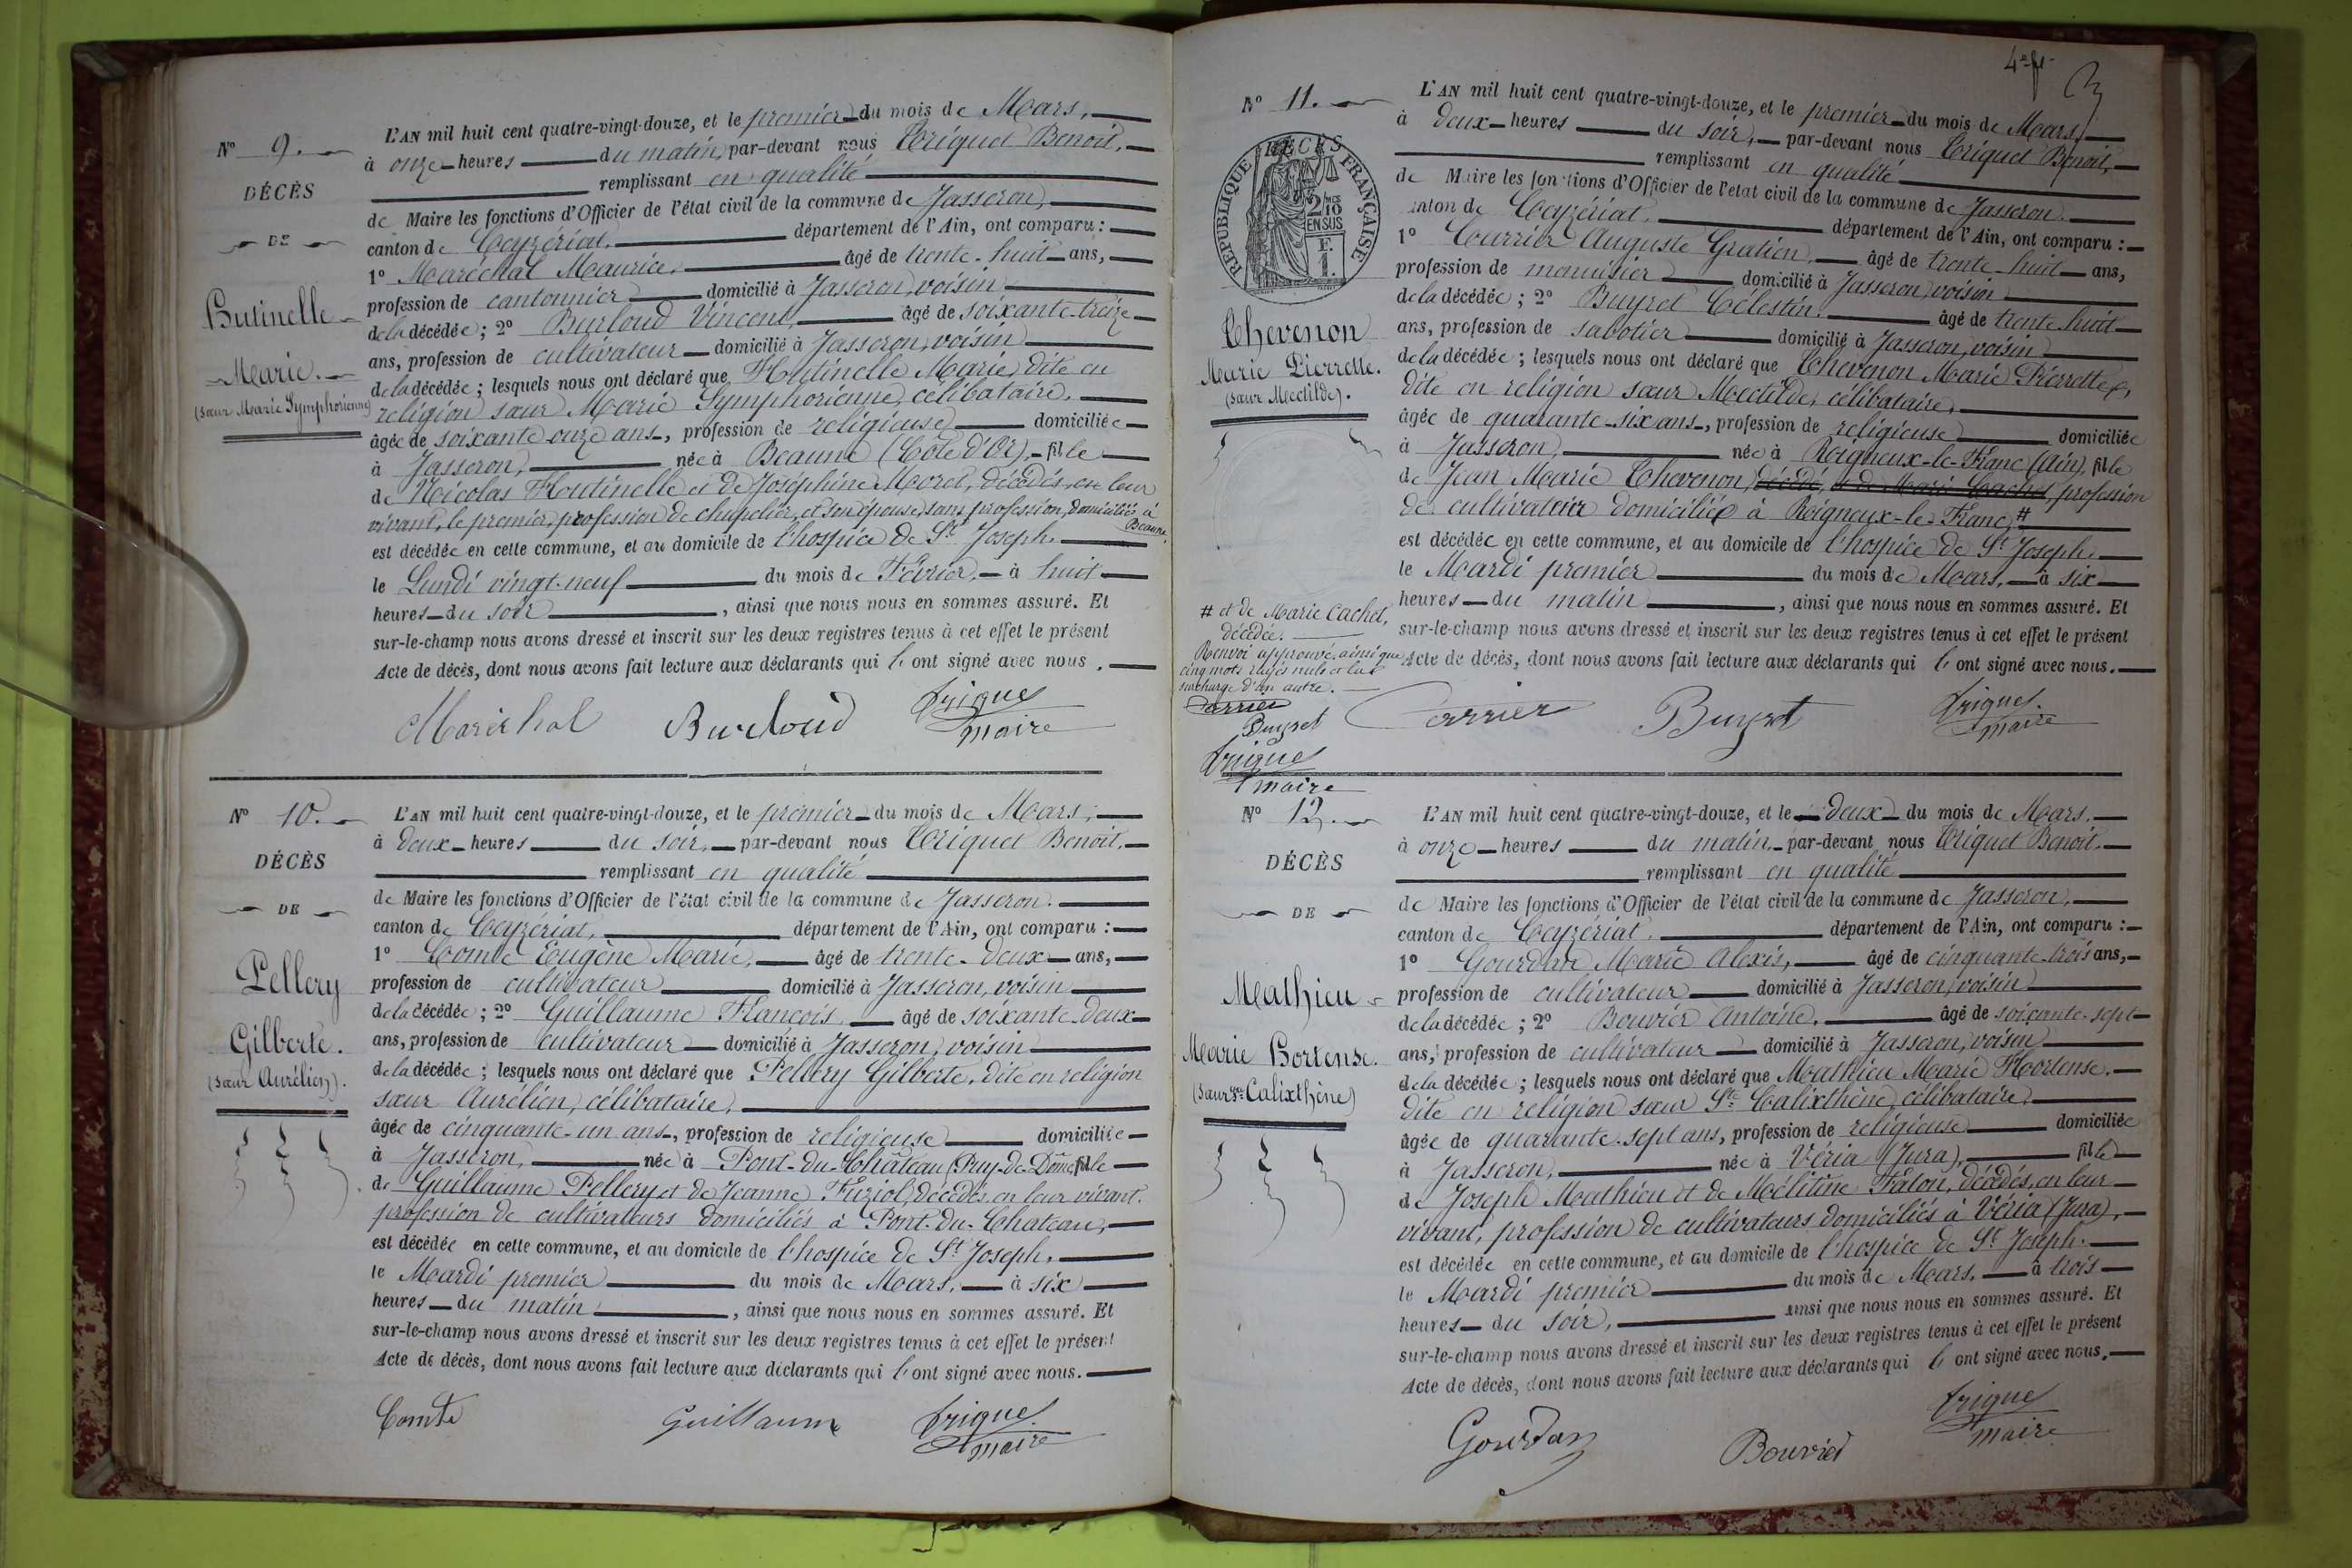 N° 9.
DÉCÈS
DE
Hutinelle
Marie.
(sœur Marie Symphorienne)
L'AN mil huit cent quatre-vingt-douze, et le premier du mois de Mars,
à onze heures du matin, par-devant nous Triquet Benoit,
remplissant en qualité
de Maire les fonctions d'Officier de l'état civil de la commune de Jasseron,
canton de Ceyzériat, département de l'Ain, ont comparu :
1° Maréchal Maurice, âgé de trente-huit ans,
profession de cantonnier domicilié à Jasseron, voisin
de la décédée ; 2° Burloud Vincent, âgé de soixante-treize
ans, profession de cultivateur domicilié à Jasseron, voisin
de la décédée ; lesquels nous ont déclaré que Hutinelle Marie, dite en
religion sœur Marie Symphorienne, célibataire,
âgée de soixante-onze ans, profession de religieuse domiciliée
à Jasseron, née à Beaune (Côte d'Or), fille
de Nicolas Hutinelle et de Joséphine Moret, décédés, en leur
vivant, le premier, profession de chapelier, et son épouse, sans profession, domiciliés à
Beaune,
est décédée en cette commune, et au domicile de l'hospice de St Joseph,
le Lundi vingt-neuf du mois de Février, à huit
heures du soir, ainsi que nous nous en sommes assuré. Et
sur-le-champ nous avons dressé et inscrit sur les deux registres tenus à cet effet le présent
Acte de décès, dont nous avons fait lecture aux déclarants qui l'ont signé avec nous.
Maréchal Burloud Triquet
maire
N° 10.
DÉCÈS
DE
Pellery
Gilberte.
(sœur Aurélien).
L'AN mil huit cent quatre-vingt-douze, et le premier du mois de Mars,
à deux heures du soir, par-devant nous Triquet Benoit,
remplissant en qualité
de Maire les fonctions d'Officier de l'état civil de la commune de Jasseron.
canton de Ceyzériat, département de l'Ain, ont comparu :
1° Comte Eugène Marie, âgé de trente-deux ans,
profession de cultivateur domicilié à Jasseron, voisin
de la décédée ; 2° Guillaume François, âgé de soixante-deux
ans, profession de cultivateur domicilié à Jasseron, voisin
de la décédée ; lesquels nous ont déclaré que Pellery Gilberte, dite en religion
sœur Aurélien, célibataire,
âgée de cinquante-un ans, profession de religieuse domiciliée
à Jasseron, née à Pont-du-Château (Puy-de-Dôme) fille
de Guillaume Pellery et de Jeanne Fuziol, décédés, en leur vivant.
profession de cultivateurs domiciliés à Pont-du-Chateau,
est décédée en cette commune, et au domicile de l'hospice de St Joseph,
le Mardi premier du mois de Mars, à six
heures du matin, ainsi que nous nous en sommes assuré. Et
sur-le-champ nous avons dressé et inscrit sur les deux registres tenus à cet effet le présent
Acte de décès, dont nous avons fait lecture aux déclarants qui l'ont signé avec nous.
Comte Guillaume Triquet
maire
4e ft
N° 11.
DÉCÈS
REPUBLIQUE FRANÇAISE
2 MES
10
EN SUS
F.
1.
Chevenon
Marie Pierrette.
(sœur Mectilde).
L'AN mil huit cent quatre-vingt-douze, et le premier du mois de Mars,
à deux heures du soir, par-devant nous Triquet Benoit,
remplissant en qualité
de Maire les fonctions d'Officier de l'état civil de la commune de Jasseron.
canton de Ceyzériat, département de l'Ain, ont comparu :
1° Currier Auguste Gratien, âgé de trente-huit ans,
profession de menuisier domicilié à Jasseron, voisin
de la décédée ; 2° Buyret Célestin, âgé de trente-huit
ans, profession de sabotier domicilié à Jasseron, voisin
de la décédée ; lesquels nous ont déclaré que Chevenon Marie Pierrette,
dite en religion sœur Mectilde, célibataire,
âgée de quarante-six ans, profession de religieuse domiciliée
à Jasseron, née à Reigneux-le-Franc (Ain), fille
de Jean Marie Chevenon, décédé, et de Marie Cachet, profession
de cultivateur domicilié à Reigneux-le-Franc, #
est décédée en cette commune, et au domicile de l'hospice de St Joseph,
le Mardi premier du mois de Mars, à six
heures du matin, ainsi que nous nous en sommes assuré. Et
sur-le-champ nous avons dressé et inscrit sur les deux registres tenus à cet effet le présent
Acte de décès, dont nous avons fait lecture aux déclarants qui l'ont signé avec nous.
# et de Marie Cachet,
décédée.
Renvoi approuvé, ainsi que
cinq mots rayés nuls et la
surcharge d'un autre.
Carrier
Buyret
Triquet
maire
Carrier Buyret Triquet
maire
N° 12.
DÉCÈS
DE
Mathieu
Marie Hortense.
(sœur Ste Calixthène)
L'AN mil huit cent quatre-vingt-douze, et le deux du mois de Mars.
à onze heures du matin, par-devant nous Triquet Benoit,
remplissant en qualité
de Maire les fonctions d'Officier de l'état civil de la commune de Jasseron,
canton de Ceyzériat, département de l'Ain, ont comparu :
1° Gourdan Marie Alexis, âgé de cinquante-trois ans,
profession de cultivateur domicilié à Jasseron, voisin
de la décédée ; 2° Bouvier Antoine, âgé de soixante-sept
ans, profession de cultivateur domicilié à Jasseron, voisin
de la décédée ; lesquels nous ont déclaré que Mathieu Marie Hortense,
dite en religion sœur Ste Calixthène, célibataire,
âgée de quarante-sept ans, profession de religieuse domiciliée
à Jasseron, née à Véria (Jura), fille
de Joseph Mathieu et de Mélitine Falon, décédés, en leur
vivant, profession de cultivateurs domiciliés à Véria (Jura),
est décédée en cette commune, et au domicile de l'hospice de St Joseph.
le Mardi premier du mois de Mars, à trois
heures du soir, ainsi que nous nous en sommes assuré. Et
sur-le-champ nous avons dressé et inscrit sur les deux registres tenus à cet effet le présent
Acte de décès, dont nous avons fait lecture aux déclarants qui l'ont signé avec nous.
Gourdan Bouvier Triquet
maire